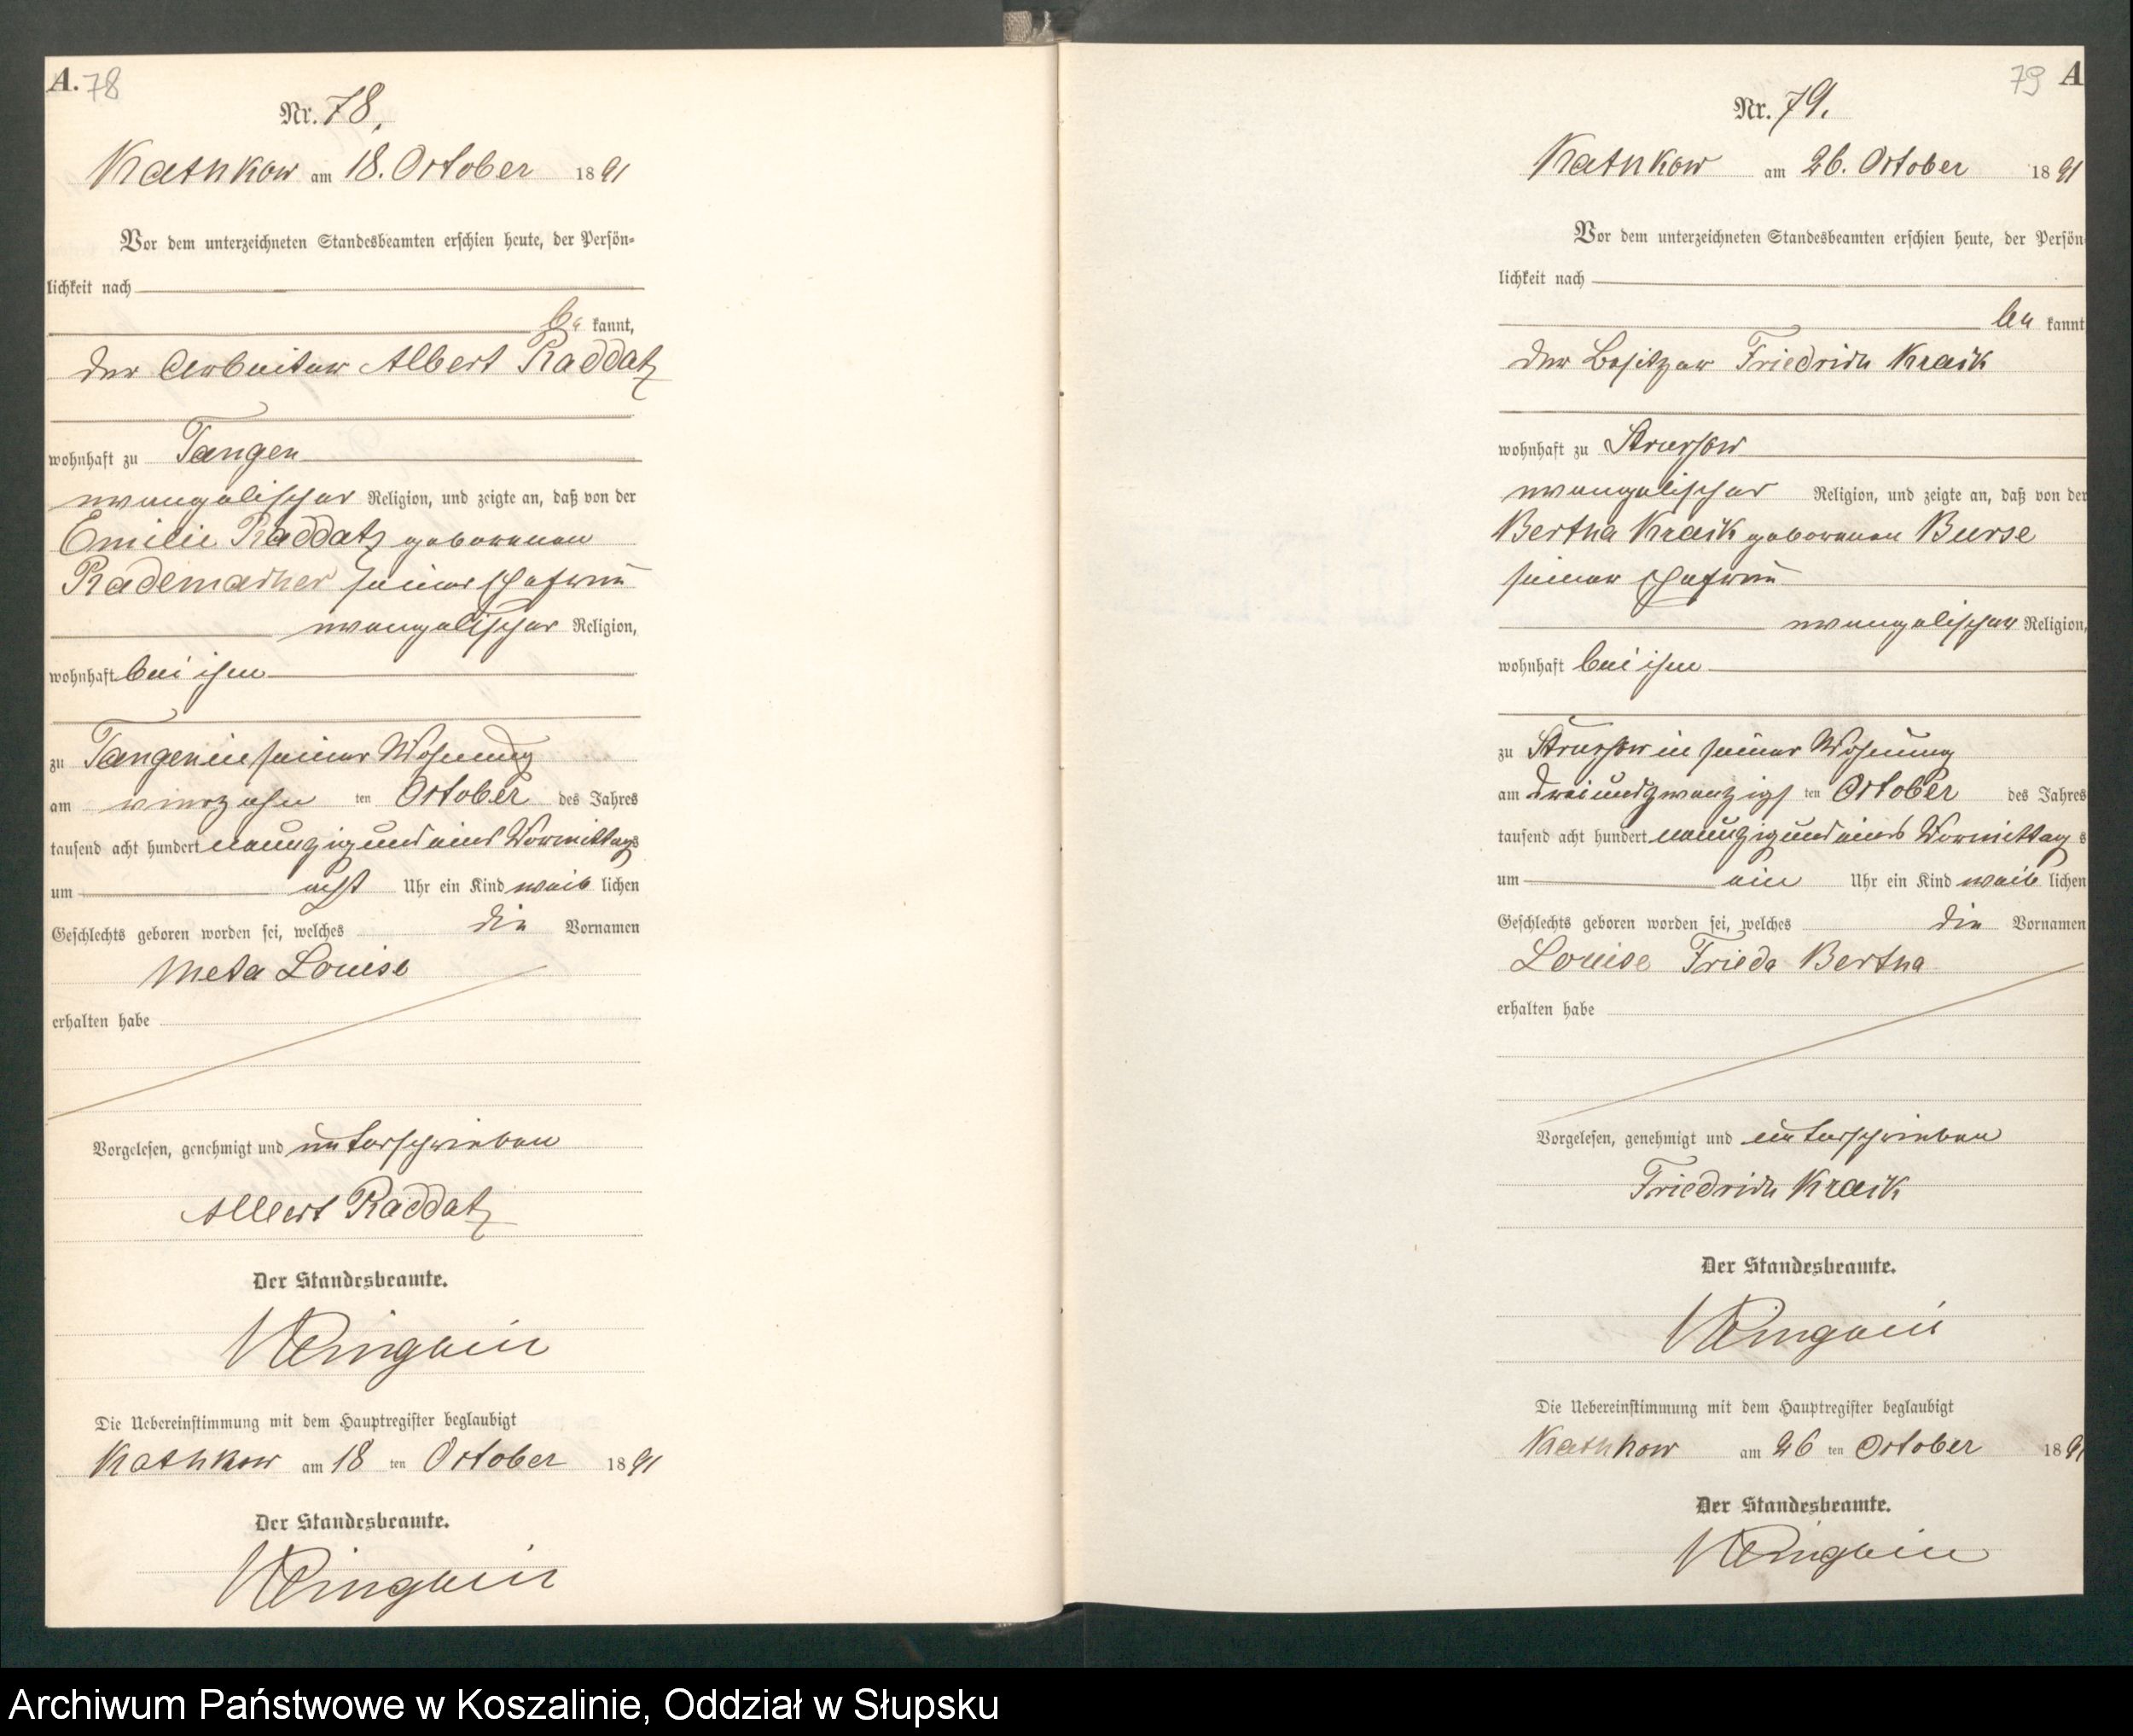 A. 78
Nr. 78.
Kathkow am 18. October 1891
Vor dem unterzeichneten Standesbeamten erschien heute, der Persön-
lichkeit nach
be kannt,
der Arbeiter Albert Raddatz
wohnhaft zu Tangen
evangelischer Religion, und zeigte an, daß von der
Emilie Raddatz geborenen
Rademacher seiner Ehefrau
evangelischer Religion,
wohnhaft bei ihm
zu Tangen in seiner Wohnung
am vierzehn ten October des Jahres
tausend acht hundert neunzig und eins Vormittags
um acht Uhr ein Kind weib lichen
Geschlechts geboren worden sei, welches die Vornamen
Meta Louise
erhalten habe
Vorgelesen, genehmigt und unterschrieben
Albert Raddatz
Der Standesbeamte.
Die Uebereinstimmung mit dem Hauptregister beglaubigt
Kathkow am 18 ten October 1891
Der Standesbeamte.
79 A
Nr. 79.
Kathkow am 26. October 1891
Vor dem unterzeichneten Standesbeamten erschien heute, der Persön
lichkeit nach
be kannt
der Besitzer Friedrich Kraik
wohnhaft zu Strussow
evangelischer Religion, und zeigte an, daß von der
Bertha Kraik geborenen Burse
seiner Ehefrau
evangelischer Religion,
wohnhaft bei ihm
zu Strussow in seiner Wohnung
am dreiundzwanzigs ten October des Jahres
tausend acht hundert neunzig und eins Vormittag s
um ein Uhr ein Kind weib lichen
Geschlechts geboren worden sei, welches die Vornamen
Louise Frieda Bertha
erhalten habe
Vorgelesen, genehmigt und unterschrieben
Friedrich Kraik
Der Standesbeamte.
Die Uebereinstimmung mit dem Hauptregister beglaubigt
Kathkow am 26 ten October 1891
Der Standesbeamte.
Archiwum Państwowe w Koszalinie, Oddział w Słupsku